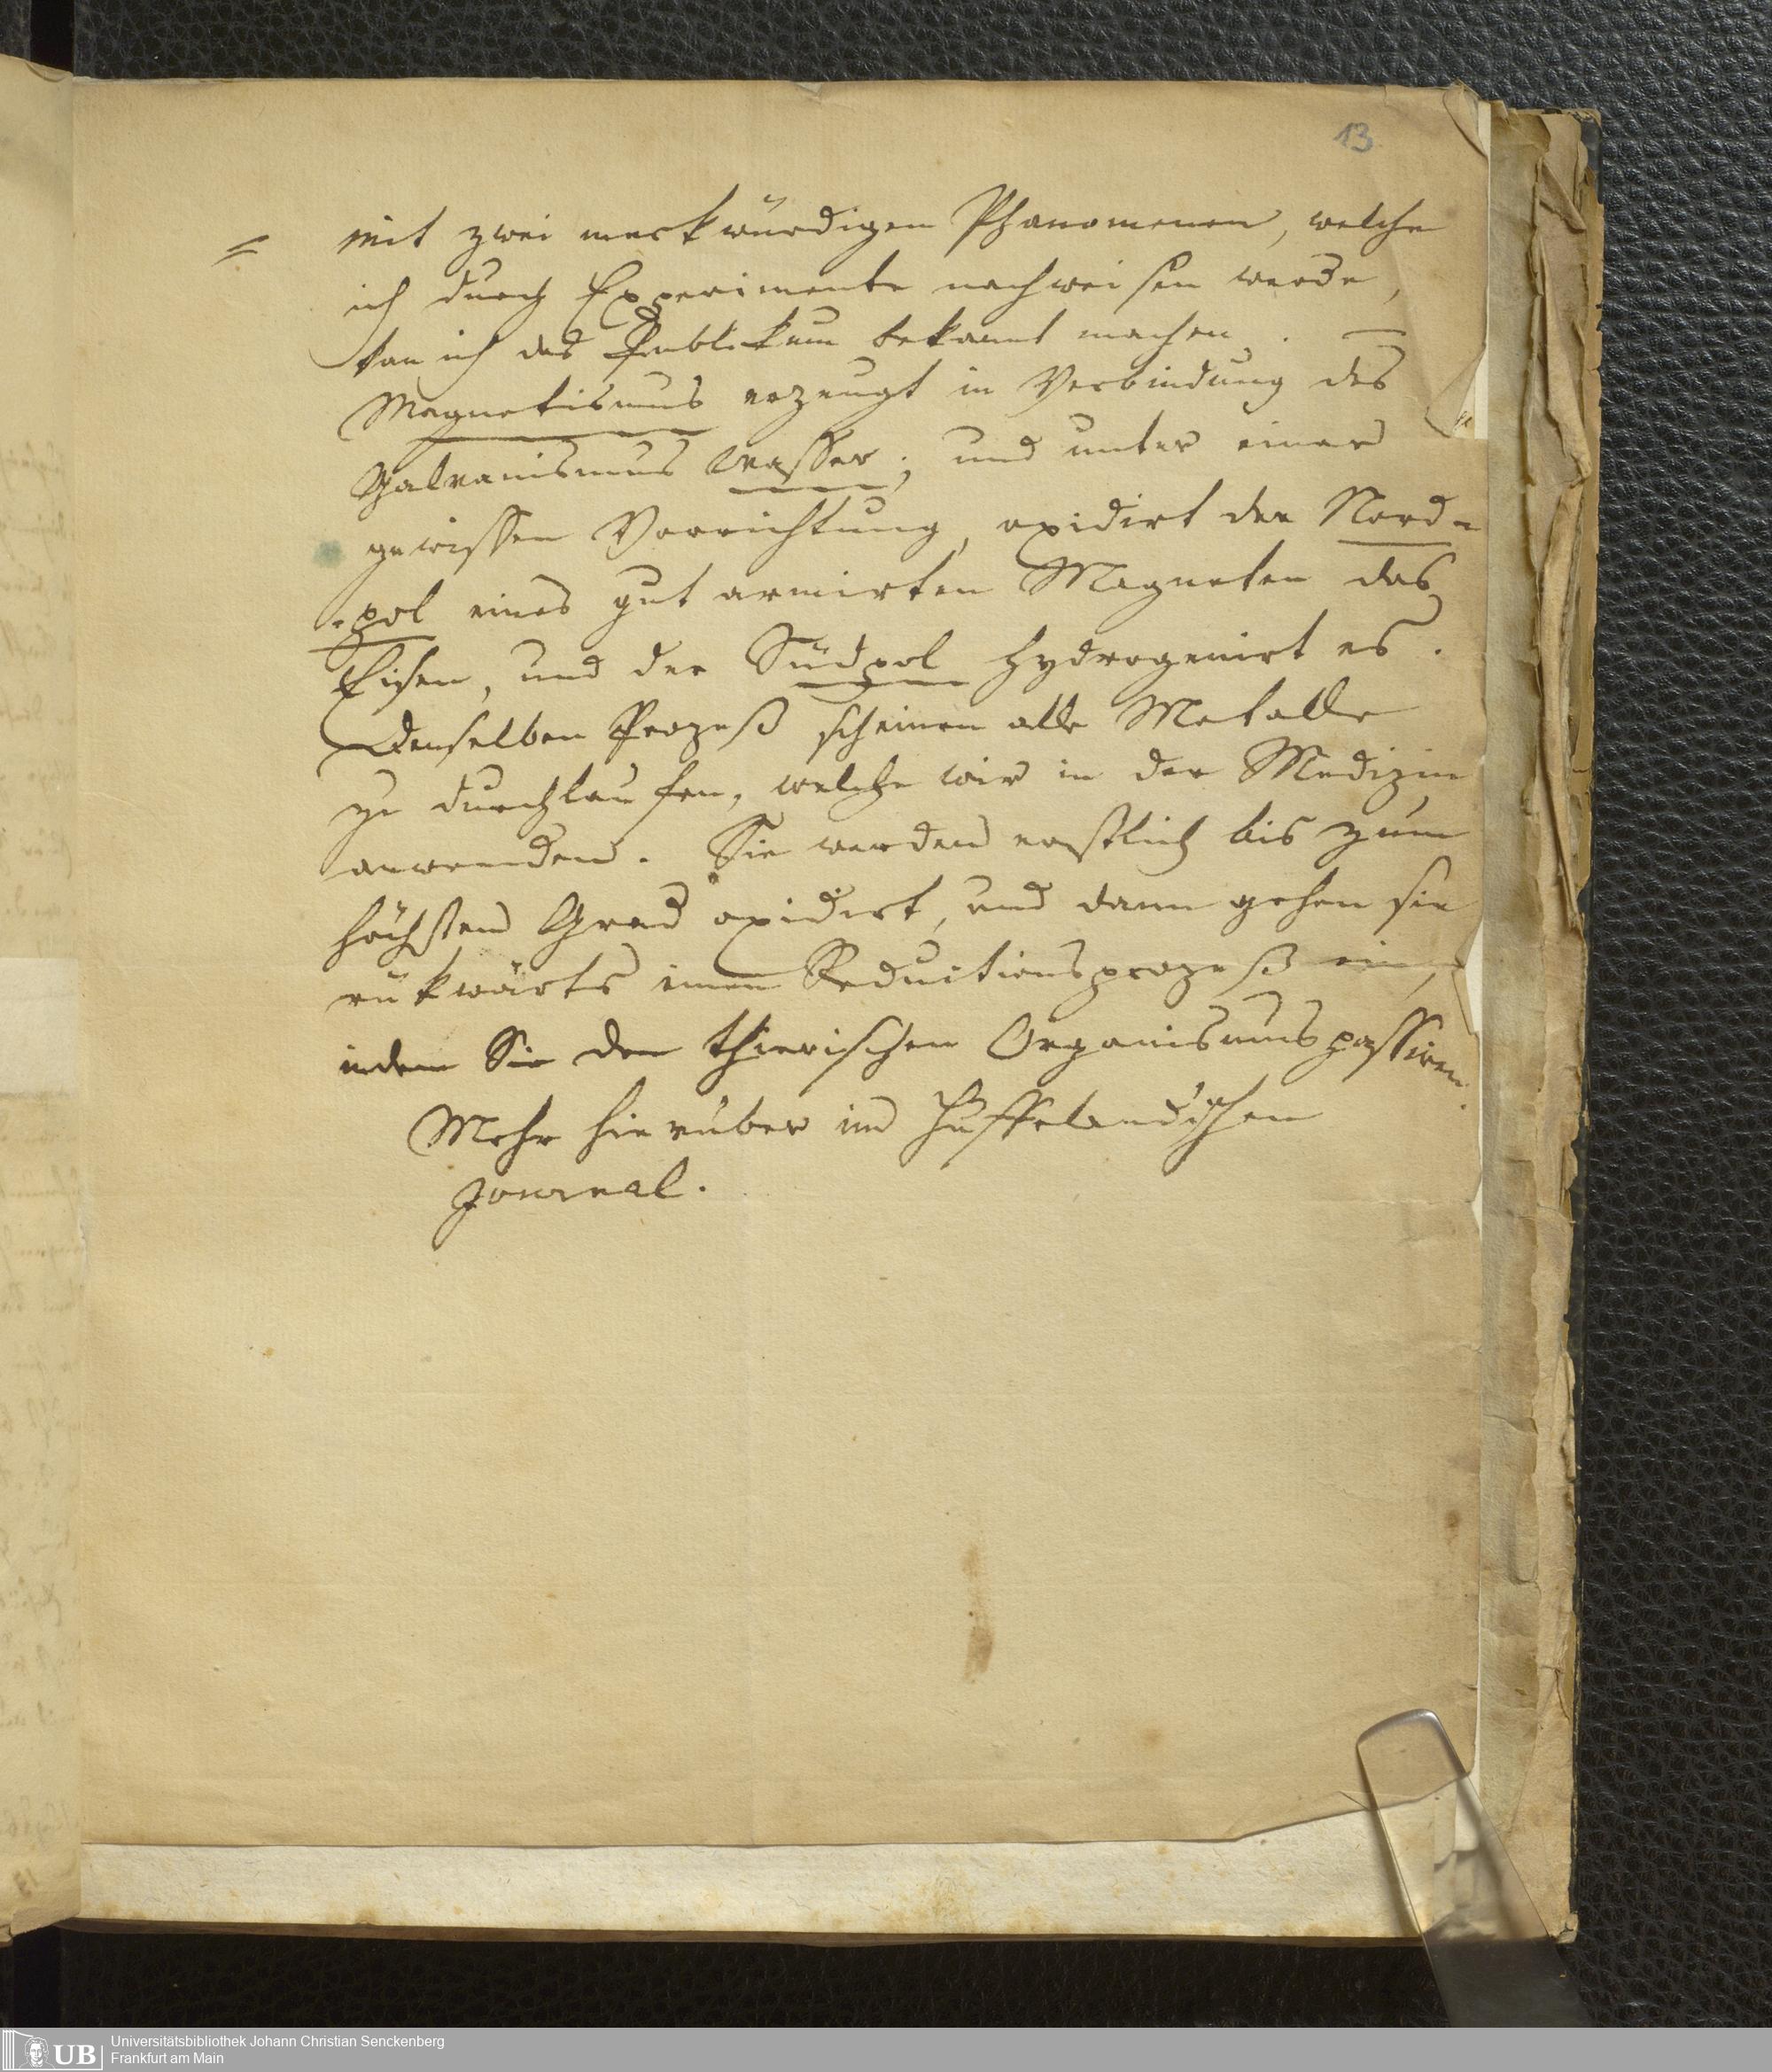 13
= Mit zwei merkwürdigen Phänomenen, welche
ich durch Experimente nachweisen werde,
kan ich das Publikum bekannt machen. —
Magnetismus erzeugt in Verbindung des
Galvanismus Wasser; und unter einer
gewissen Vorrichtung, oxidirt der Nord-
-pol eines gut armirten Magneten das
Eisen, und der Südpol hydrogenirt es.
Denselben Prozeß scheinen alle Metalle
zu durchlaufen, welche wir in der Medizin
anwenden. Sie werden erstlich bis zum
höchsten Grad oxidirt, und dann gehen sie
rükwärts einen Reductionsprozeß ein,
indem Sie den thierischen Organismus passiren.
Mehr hierüber im Huffelandschen
Journal.
UB
Universitätsbibliothek Johann Christian Senckenberg
Frankfurt am Main